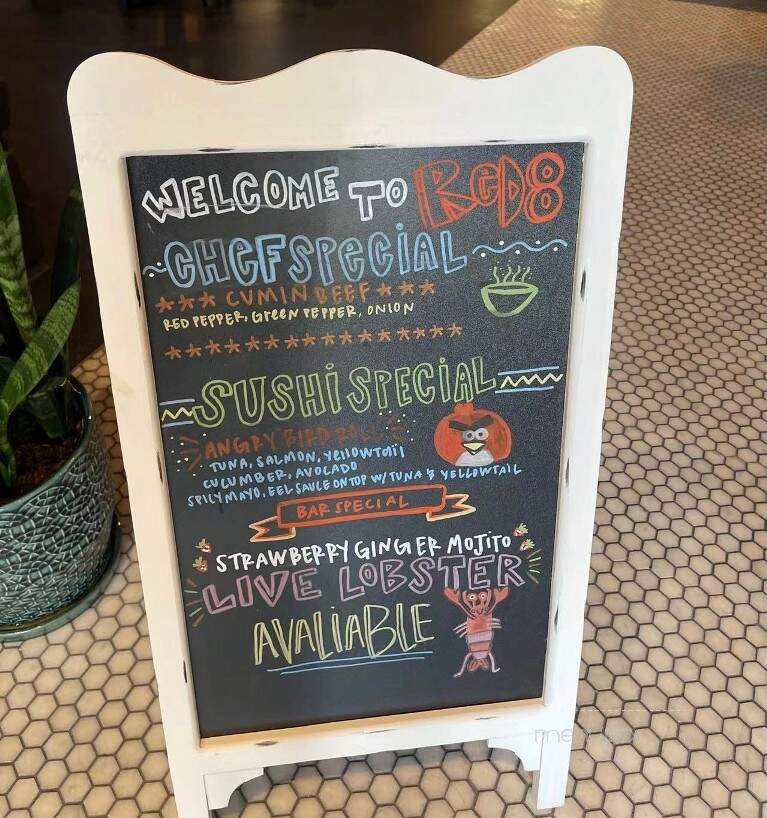 WELCOME TO ReD8
CHeFSPeCiAL
*** CUMIN BEEF ***
RED PEPPER, GreeN PEPPER, ONION
**************
SUSHi SPECiAL
ANGRY BIRD ROLL
TUNA, SALMON, YellowTail
CUCUMBER, AVOCADO
SPICY MAYO, EEL SAUCE ON TOP W/TUNA & YELLOWTAIL
BAR SPECIAL
STRAWBERRY GINGER MOJITO
LIVE LOBSTER
AVALIABLE